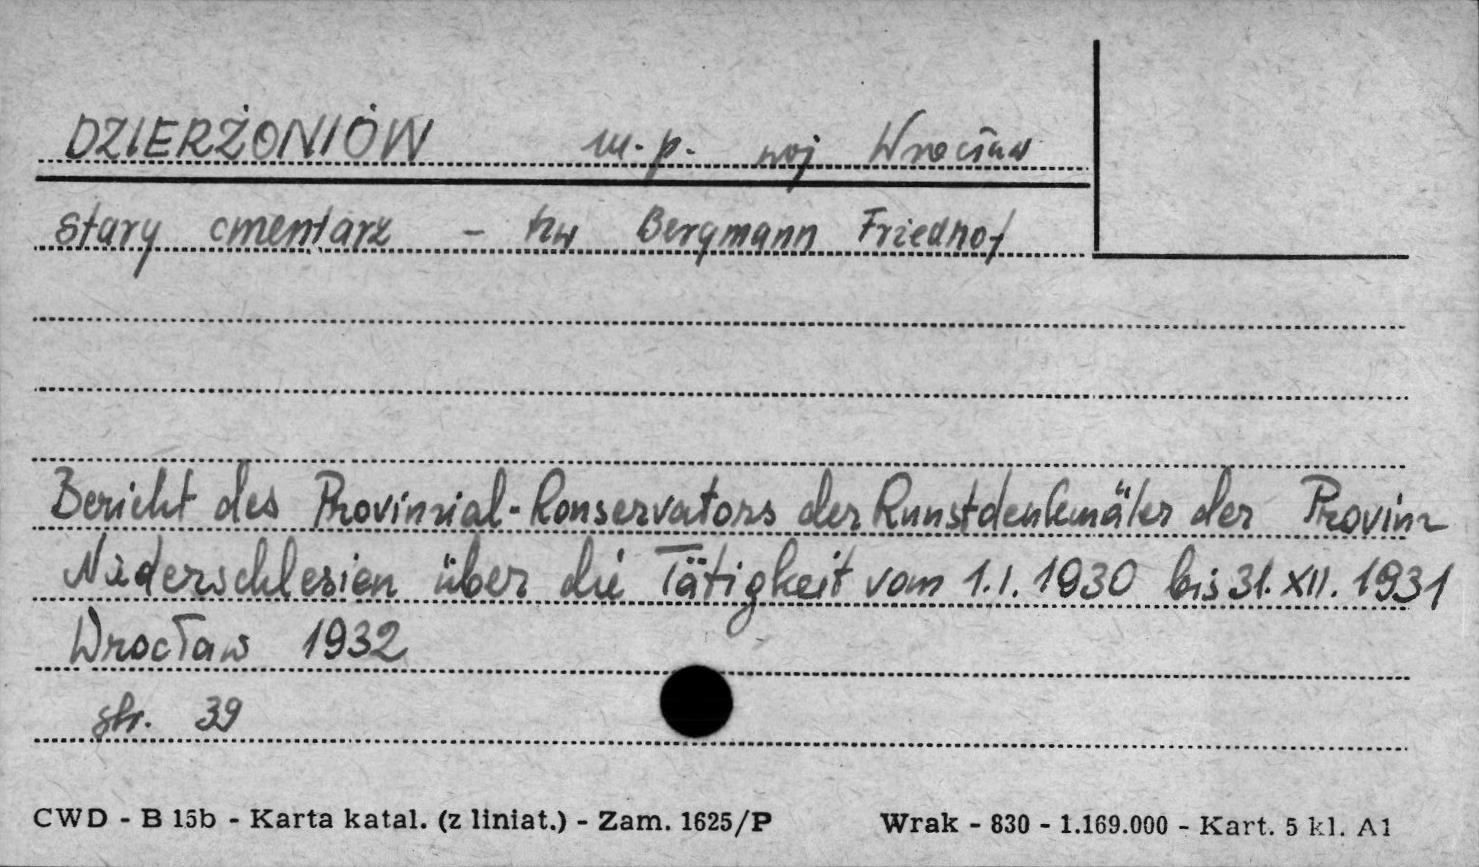 DZIERŻONIÓW m.p. woj Wrocław
stary cmentarz - tzw Bergmann Friedhof
Bericht des Provinzial-Konservators der Kunstdenkmäler der Provinz
Niederschlesien über die Tätigkeit vom 1.I.1930 bis 31.XII.1931
Wrocław 1932
str. 39
CWD - B 15b - Karta katal. (z liniat.) - Zam. 1625/P Wrak - 830 - 1.169.000 - Kart. 5 kl. A1